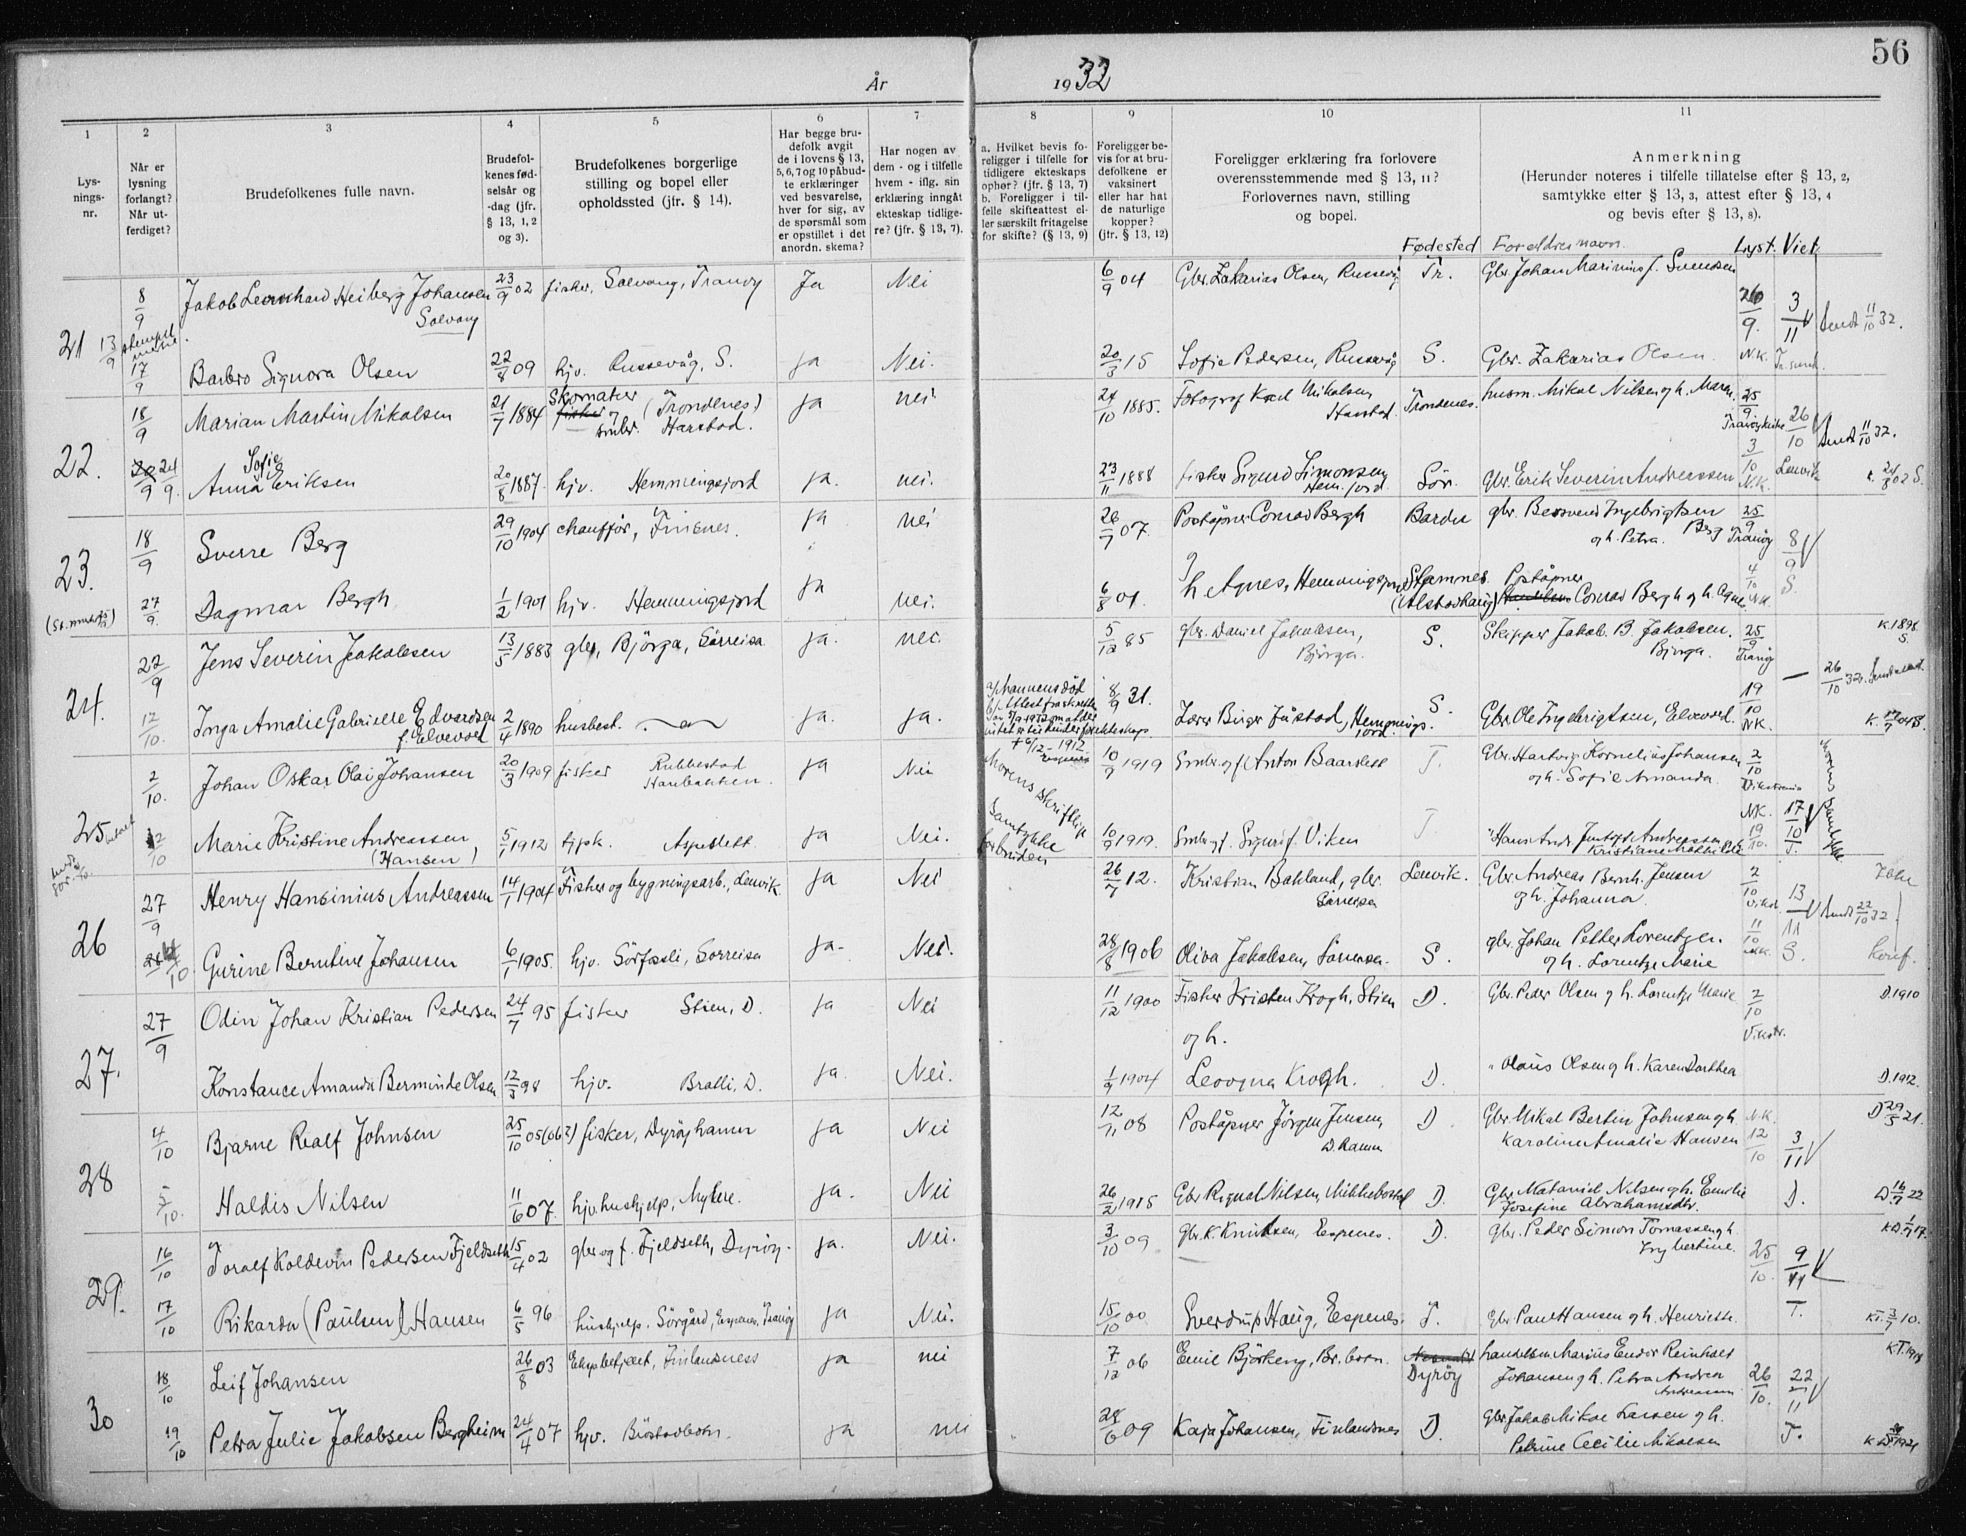 56
År 1932
1 2 3 4 5 6 7 8 9 10 11
Lysningsnr.
Når er lysning forlangt? Når utferdiget?
Brudefolkenes fulle navn.
Brudefolkenes fødselsår og -dag (jfr. § 13, 1, 2 og 3).
Brudefolkenes borgerlige stilling og bopel eller opholdssted (jfr. § 14).
Har begge brudefolk avgit de i lovens § 13, 5, 6, 7 og 10 påbudte erklæringer ved besvarelse, hver for sig, av de spørsmål som er opstillet i det anordn. skema?
Har nogen av dem - og i tilfelle hvem - iflg. sin erklæring inngått ekteskap tidligere? (jfr. § 13, 7).
a. Hvilket bevis foreligger i tilfelle for tidligere ekteskaps ophør? (jfr. § 13, 7) b. Foreligger i tilfelle skifteattest eller særskilt fritagelse for skifte? (§ 13, 9)
Foreligger bevis for at brudefolkene er vaksinert eller har hat de naturlige kopper? (jfr. § 13, 12)
Foreligger erklæring fra forlovere overensstemmende med § 13, 11? Forlovernes navn, stilling og bopel.
Anmerkning (Herunder noteres i tilfelle tillatelse efter § 13, 2, samtykke etter § 13, 3, attest efter § 13, 4 og bevis efter § 13, 8).
Fødested Foreldres navn. Lyst. Viet.
21 8/9 Jakob Leonhard Heiberg Johansen Solvang 23/9 02 fisker, Solvang, Tranøy Ja Nei 6/9 04 Gbr. Zakarias Olsen, Russevåg Tr. Gbr. Johan Marinius f. Svendsen 26/9. 3/11 Sendt 11/10 32.
17/9 Barbro Signora Olsen 22/8 09 hjv. Russevåg, S. Ja Nei. 20/3 15 Sofie Pedersen, Russevåg S. Gbr. Zakarias Olsen. N.K.
22. 18/9 Marian Martin Mikalsen 21/7 1884 Skomaker (Trondenes) Harstad. Ja nei 24/10 1885. Fotograf Karl Mikalsen Harstad. Trondenes. husm. Mikal Nilsen og h. Maren 25/9 26/10 Sendt 11/10 32.
24/9. Anna Sofie Eriksen 20/8 1887. hjv. Hemmingsjord ja. nei. 23/11 1888 fisker Sigurd Simonsen Hem.jord Sør. gbr. Erik Severin Andreassen 3/10 N.K. Lenvik
23. 18/9 Sverre Berg 29/10 1904 chauffør, Finsnes. ja nei 26/7 07. Poståpner Conrad Bergh Bardu gbr. Ingebrigtsen Berg og h. Petra. 25/9 Tranøy 8/9
27/9. Dagmar Bergh 1/2 1901 hjv. Hemmingsjord ja nei. 6/8 01. h. Agnes, Hemmingsjord Stamnes (Alstahaug) Poståpner Conrad Bergh og h. Agnes 4/10 N.K. S.
24. 22/9 Jens Severin Jakobsen 13/5 1883 gbr, Bjørga, Sørreisa ja. nei 5/12 85 gbr. Daniel Jakobsen, Bjørga. S. Skipper Jakob B. Jakobsen. Bjørga. 25/9 Tranøy K. 1898 S.
17/10. Inga Amalie Gabrielle Edvardsen f. Elvevold 2/4 1890 husbest. ja. ja. 8/9 31. Lærer Birger Justad, Hemmings-jord. S. Gbr. Ole Ingebrigtsen, Elvevold. 19/10 N.K.
25 2/10. Johan Oskar Olai Johansen 20/3 1909 fisker Rubbestad ja Nei Morens skriftlige samtykke for bruden 10/9 1919 Smbr. og f. Anton Baarslett T. Gbr. Hartvig Kornelius Johansen og h. Sofie Amanda. 2/10
12/10 Marie Kristine Andreassen (Hansen) 5/1 1912 tjpk. Aspeslett ja Nei. 10/9 1919. Sigurd f. Viken T. Hans Andr. Andreassen Kristiane Mathilde N.K. 19/10. 17/10
26 27/9 Henry Hansinius Andreassen 14/1 1904 Fisker og bygningsarb., Lenvik ja Nei 26/7 12. Kristian Bakland, gbr. Sørreisa Lenvik. Gbr. Andreas Bernh. Jensen og h. Johanna. 2/10 13/11 Sendt 22/10 32
4/10 Gurine Berntine Johansen 6/1 1905. hjv. Sørfossli, Sørreisa ja. Nei. 28/8 1906 Oliva Jakobsen, Sørreisa. S. gbr. Johan Petter Lorentzen. og h. Lorentze Marie 11/10 N.K. S. konf.
27. 27/9 Odin Johan Kristian Pedersen 24/7 95 fisker Stien, D. ja Nei 11/12 1900 Fisker Kristen Krogh, Stien og h. D. Gbr. Peder Olsen og h. Lorentze Marie 2/10 Vikstr. D. 1910
Konstance Amanda Berminde Olsen 12/3 98 hjv. Bralli, D. ja. Nei. 1/9 1904 Leovgna Krogh. D. Olaus Olsen og h. Karen Dorthea D. 1912.
28 4/10 Bjarne Roalf Johnsen 25/10 05 (06?) fisker, Dyrøyhamn ja Nei 12/11 08 Poståpner Jørgen Jensen, D.hamn D. Gbr. Mikal Bertin Johnsen og h. Karoline Amalie Hansen N.K. 12/10 3/11
5/10. Haldis Nilsen 11/6 07. hjv. hushjelp, Mykere. ja. Nei 26/2 1915 Gbr. Nilsen, Mikkelbostad D. Gbr. Nataniel Nilsen og h. Emelie Josefine Abrahamsdtr. D.
29. 16/10 Toralf Koldevin Pedersen Fjeldseth 15/4 02 gbr. og f. Fjeldseth, Dyrøy. ja. Nei. 3/10 09 gbr. K. Knudsen, Espenes. D. gbr. Peder Simon Tomassen og h. Ingbertine. 25/10. 9/11
17/10 Rikarda (Paulsen) Hansen 6/5 96 hushjelp. Sørgård, Espenes, Tranøy ja Nei. 15/10 00 Sverdrup Haug, Espenes. T. Gbr. Paul Hansen og h. Henriette. T.
30 18/10 Leif Johansen 26/8 03 Finlandsnes ja nei 7/12 06 Emil Bjørkeng, Br.botn. Dyrøy handelsm. Marius Ender Reinholt Johansen og h. Petra Andrea Andreassen 26/10. 22/11
19/10 Petra Julie Jakobsen Bergheim 24/4 07 hjv. Brøstadbotn. ja nei 28/6 09 Kaja Johansen, Finlandsnes D. Gbr. Jakob Mikal Larsen og h. Petrine Cecilie Mikalsen T.